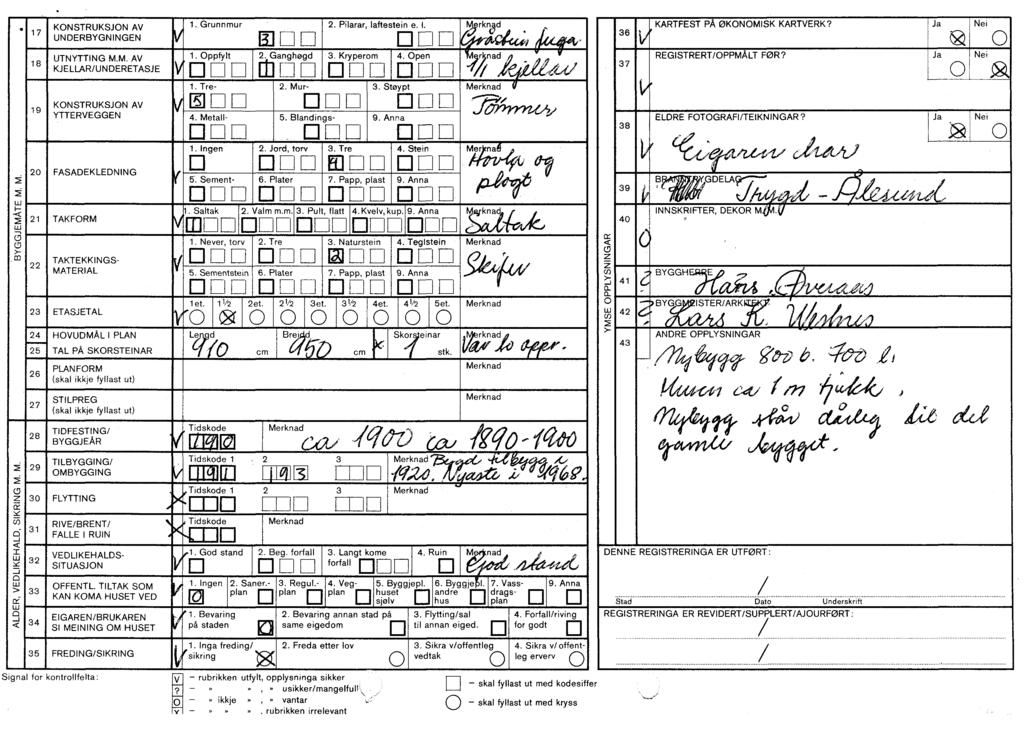 17 KONSTRUKSJON AV UNDERBYGNINGEN V 1. Grunnmur 3 2. Pilarar, laftestein e. l. Merknad Gråstein fuga
18 UTNYTTING M.M. AV KJELLAR/UNDERETASJE V 1. Oppfylt 2. Ganghøgd 1 3. Kryperom 4. Open Merknad 1/1 kjellar
19 KONSTRUKSJON AV YTTERVEGGEN V 1. Tre- 5 2. Mur- 3. Støypt Merknad Tømmer
4. Metall- 5. Blandings- 9. Anna
BYGGJEMÅTE M. M.
20 FASADEKLEDNING V 1. Ingen 2. Jord, torv 3. Tre 9 4. Stein Merknad Hovla og
5. Sement- 6. Plater 7. Papp, plast 9. Anna pløgt
21 TAKFORM V 1. Saltak 1 2. Valm m.m. 3. Pult, flatt 4. Kvelv, kup. 9. Anna Merknad Saltak
22 TAKTEKKINGS-MATERIAL V 1. Never, torv 2. Tre 3. Naturstein 2 4. Teglstein Merknad
5. Sementstein 6. Plater 7. Papp, plast 9. Anna Skifer
23 ETASJETAL V 1et. 1½ 2et. 2½ 3et. 3½ 4et. 4½ 5et. Merknad
24 HOVUDMÅL I PLAN Lengd 910 cm Breidd 950 cm Skorsteinar 1 stk. Merknad Var to oppr.
25 TAL PÅ SKORSTEINAR
26 PLANFORM (skal ikkje fyllast ut) Merknad
27 STILPREG (skal ikkje fyllast ut) Merknad
ALDER, VEDLIKEHALD, SIKRING M. M.
28 TIDFESTING/ BYGGJEÅR V Tidskode 190 Merknad ca 1900 ca 1890-1900
29 TILBYGGING/ OMBYGGING V Tidskode 1 191 2 193 3 Merknad Bygd tilbygg i
1920. Nyaste i 1968.
30 FLYTTING X Tidskode 1 2 3 Merknad
31 RIVE/BRENT/ FALLE I RUIN X Tidskode Merknad
32 VEDLIKEHALDS-SITUASJON V 1. God stand 2. Beg. forfall 3. Langt kome forfall 4. Ruin Merknad God stand
33 OFFENTL. TILTAK SOM KAN KOMA HUSET VED V 1. Ingen 0 2. Saner.-plan 3. Regul.-plan 4. Veg-plan 5. Byggjepl. huset sjølv 6. Byggjepl. andre hus 7. Vass-drags-plan 9. Anna
34 EIGAREN/BRUKAREN SI MEINING OM HUSET V 1. Bevaring på staden 0 2. Bevaring annan stad på same eigedom 3. Flytting/sal til annan eiged. 4. Forfall/riving for godt
35 FREDING/SIKRING V 1. Inga freding/ sikring 2. Freda etter lov 3. Sikra v/offentleg vedtak 4. Sikra v/offent-leg erverv
Signal for kontrollfelta:
V – rubrikken utfylt, opplysninga sikker
? – " " , " usikker/mangelfull
O – " ikkje " , " vantar
– " " " , rubrikken irrelevant
– skal fyllast ut med kodesiffer
– skal fyllast ut med kryss
YMSE OPPLYSNINGAR
36 V KARTFEST PÅ ØKONOMISK KARTVERK? Ja Nei
37 V REGISTRERT/OPPMÅLT FØR? Ja Nei
38 V ELDRE FOTOGRAFI/TEIKNINGAR? Ja Nei
Eigaren har
39 V BRANNTRYGDELAG Trygd - Ålesund
40 O INNSKRIFTER, DEKOR M.M.
41 ? BYGGHERRE Hans Øveraas
42 ? BYGGMEISTER/ARKITEKT Lars K. Westnes
43 ANDRE OPPLYSNINGAR
Nybygg 800 b. 700 l.
Muren ca 1 m tjukk.
Nybygg står dårleg til det
gamle bygget.
DENNE REGISTRERINGA ER UTFØRT:
/
Stad Dato Underskrift
REGISTRERINGA ER REVIDERT/SUPPLERT/AJOURFØRT:
/
/